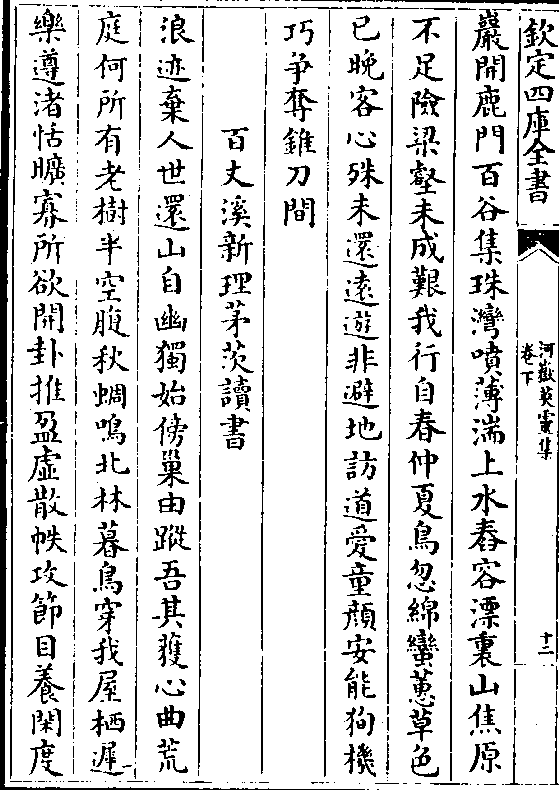 欽定四庫全書
河嶽英靈集
卷下
十二
巖開鹿門百谷集珠灣噴薄湍上水舂容漂裏山焦原
不足險梁壑未成艱我行自春仲夏鳥忽綿蠻蕙草色
已晚客心殊未還遠遊非避地訪道愛童顔安能狥機
巧爭奪錐刀間
百丈溪新理茅茨讀書
浪迹棄人世還山自幽獨始傍巢由蹤吾其獲心曲荒
庭何所有老樹半空腹秋蜩鳴北林暮鳥穿我屋栖遲
樂遵渚恬曠寡所欲開卦推盈虛散帙攻節目養閑度